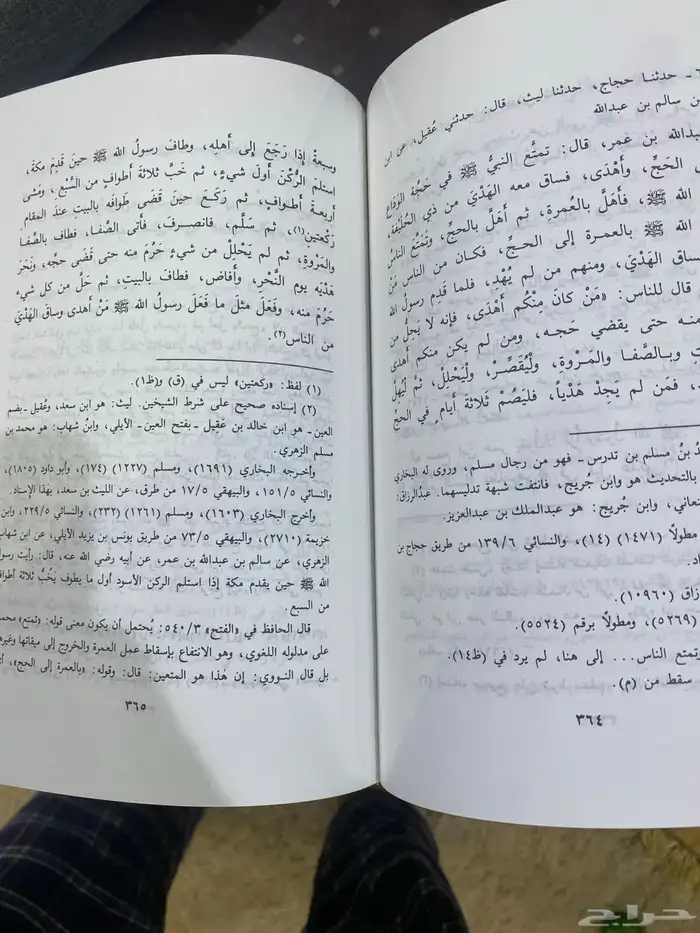 ٦ - حدثنا حجاج، حدثنا ليث، قال: حدثني عُقيل، عن ابن
سالم بن عبدالله
عبدالله بن عمر، قال: تمتَّع النبيُّ ﷺ في حَجَّة الوَدَاع
الحَجِّ، وأَهْدَى، فساق معه الهَدْيَ من ذي الحُلَيْفة،
الله ﷺ، فأَهَلَّ بالعُمرةِ، ثم أَهَلَّ بالحجِّ، وتَمَتَّعَ الناسُ
الله ﷺ بالعمرة إلى الحجِّ، فكان من الناس مَنْ
ساق الهَدْيَ، ومنهم من لم يُهْدِ، فلما قَدِمَ رسولُ الله
قال للناس: «مَنْ كانَ مِنْكُم أَهْدَى، فإنه لا يَحِلُّ من
منه حتى يقضي حَجه، ومن لم يكن منكم أهدى
وبالصَّفا والمَروةِ، ولْيُقَصِّرْ، ولْيَحْلِلْ، ثم لْيُهِلَّ
، فمَن لم يَجِدْ هَدْياً، فليَصُمْ ثلاثةَ أيامٍ في الحجِّ
بنُ مسلم بن تدرس - فهو من رجال مسلم، وروى له البخاري
بالتحديث هو وابن جُريج، فانتفت شبهة تدليسهما. عبدالرزاق:
وابن جُريج: هو عبدالملك بن عبدالعزيز.
مطولاً (١٤٧١) (١٤)، والنسائي ١٣٩/٦ من طريق حجاج بن
(١٠٩٦٠).
(٥٢٦٩)، ومطولاً برقم (٥٥٢٤).
وتمتع الناس... إلى هنا، لم يرد في (ظ١٤).
سقط من (م).
٣٦٤
وسبعةٌ إذا رَجَعَ إلى أَهلِه، وطافَ رسولُ الله ﷺ حينَ قَدِمَ مكةَ،
استلم الرُّكْنَ أول شيءٍ، ثم خَبَّ ثلاثةَ أطوافٍ من السَّبْعِ، ومَشى
أربعةَ أطوافٍ، ثم ركَعَ حينَ قَضَى طوافَه بالبيتِ عندَ المقامِ
ركعتين(١)، ثم سَلَّم، فانصرفَ، فأَتَى الصَّفا، فطاف بالصَّفا
والمَرْوةِ، ثم لم يَحْلِلْ من شيءٍ حَرُمَ منه حتى قَضَى حجَّه، ونَحَرَ
هَدْيَه يوم النَّحْرِ، وأَفاضَ، فطافَ بالبيت، ثم حَلَّ من كل شيءٍ
حَرُمَ منه، وفَعَلَ مثلَ ما فَعَلَ رسولُ الله ﷺ مَنْ أهدى وساق الهَدْيَ
من الناس(٢).
(١) لفظ: «ركعتين» ليس في (ق) و(ظ١).
(٢) إسناده صحيح على شرط الشيخين. ليث: هو ابن سعد، وعُقيل - بضم
العين - هو ابن خالد بن عَقِيل - بفتح العين - الأيلي، وابنُ شهاب: هو محمد بن
مسلم الزهري.
وأخرجه البخاري (١٦٩١)، ومسلم (١٢٢٧) (١٧٤)، وأبو داود (١٨٠٥)،
والنسائي ١٥١/٥، والبيهقي ١٧/٥ من طرق، عن الليث بن سعد، بهذا الإسناد.
وأخرج البخاري (١٦٠٣)، ومسلم (١٢٦١) (٢٣٢)، والنسائي ٢٢٩/٥، وابن
خزيمة (٢٧١٠)، والبيهقي ٧٣/٥ من طريق يونس بن يزيد الأيلي، عن ابن شهاب
الزهري، عن سالم بن عبدالله بن عمر، عن أبيه رضي الله عنه، قال: رأيت رسول
الله ﷺ حين يقدم مكة إذا استلم الركن الأسود أول ما يطوف يَخُبُّ ثلاثة أطواف
من السبع.
قال الحافظ في «الفتح» ٥٤٠/٣: يُحتمل أن يكون معنى قوله: «تمتع» محمولاً
على مدلوله اللغوي، وهو الانتفاع بإسقاط عمل العمرة والخروج إلى ميقاتها وغيرها
بل قال النووي: إن هٰذا هو المتعين: قال: وقوله: «بالعمرة إلى الحج»،
٣٦٥
حراج